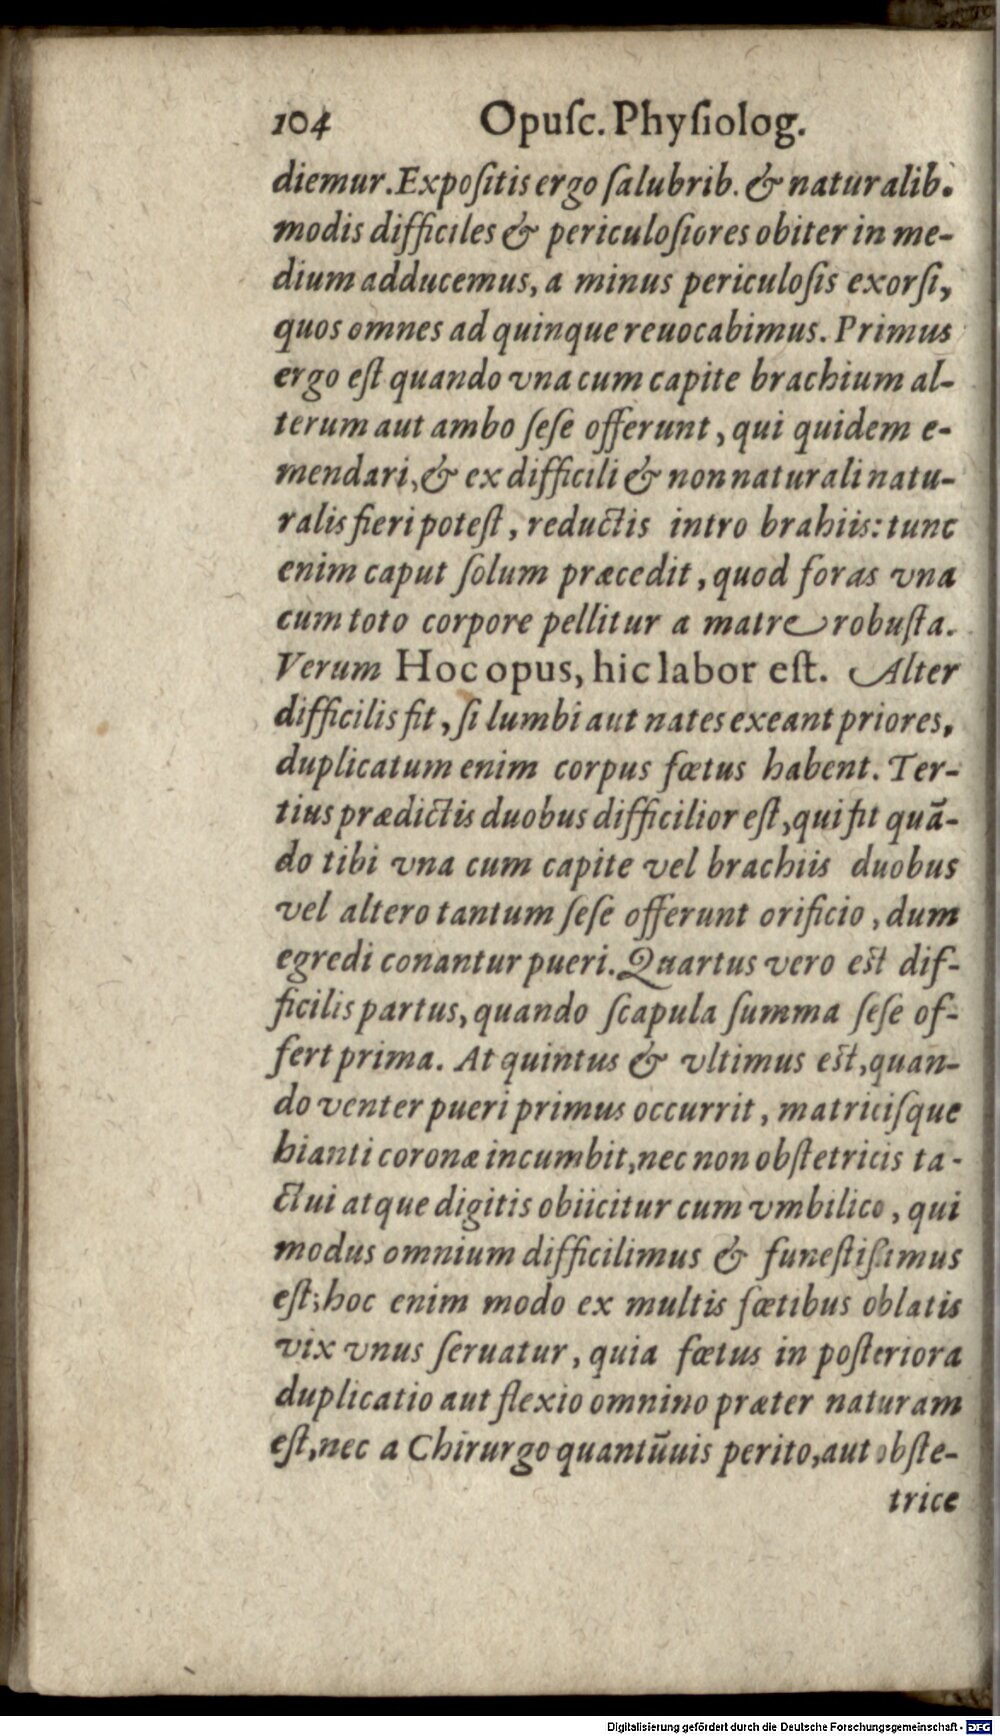 104 Opuſc. Phyſiolog.
diemur. Expoſitis ergo ſalubrib. & naturalib.
modis difficiles & periculoſiores obiter in me-
dium adducemus, a minus periculoſis exorſi,
quos omnes ad quinque reuocabimus. Primus
ergo eſt quando vna cum capite brachium al-
terum aut ambo ſeſe offerunt, qui quidem e-
mendari, & ex difficili & non naturali natu-
ralis fieri poteſt, reductis intro brahiis: tunc
enim caput ſolum præcedit, quod foras vna
cum toto corpore pellitur a matre robuſta.
Verum Hoc opus, hic labor eſt. Alter
difficilis fit, ſi lumbi aut nates exeant priores,
duplicatum enim corpus fœtus habent. Ter-
tius prædictis duobus difficilior eſt, qui fit quã-
do tibi vna cum capite vel brachiis duobus
vel altero tantum ſeſe offerunt orificio, dum
egredi conantur pueri. Quartus vero eſt dif-
ficilis partus, quando ſcapula ſumma ſeſe of-
fert prima. At quintus & vltimus eſt, quan-
do venter pueri primus occurrit, matriciſque
hianti coronæ incumbit, nec non obſtetricis ta-
ctui atque digitis obiicitur cum vmbilico, qui
modus omnium difficilimus & funeſtiſsimus
eſt; hoc enim modo ex multis fœtibus oblatis
vix vnus ſeruatur, quia fœtus in poſteriora
duplicatio aut flexio omnino præter naturam
eſt, nec a Chirurgo quantũuis perito, aut obſte-
trice
Digitalisierung gefördert durch die Deutsche Forschungsgemeinschaft - DFG